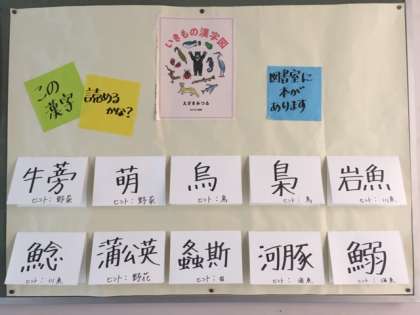 この
漢字
読める
かな?
いきもの漢字図
えざきみつる
図書室に
本が
あります
牛蒡
ヒント:野菜
萌
ヒント:野菜
烏
ヒント:鳥
梟
ヒント:鳥
岩魚
ヒント:川魚
鯰
ヒント:川魚
蒲公英
ヒント:野花
螽斯
ヒント:虫
河豚
ヒント:海魚
鰯
ヒント:海魚